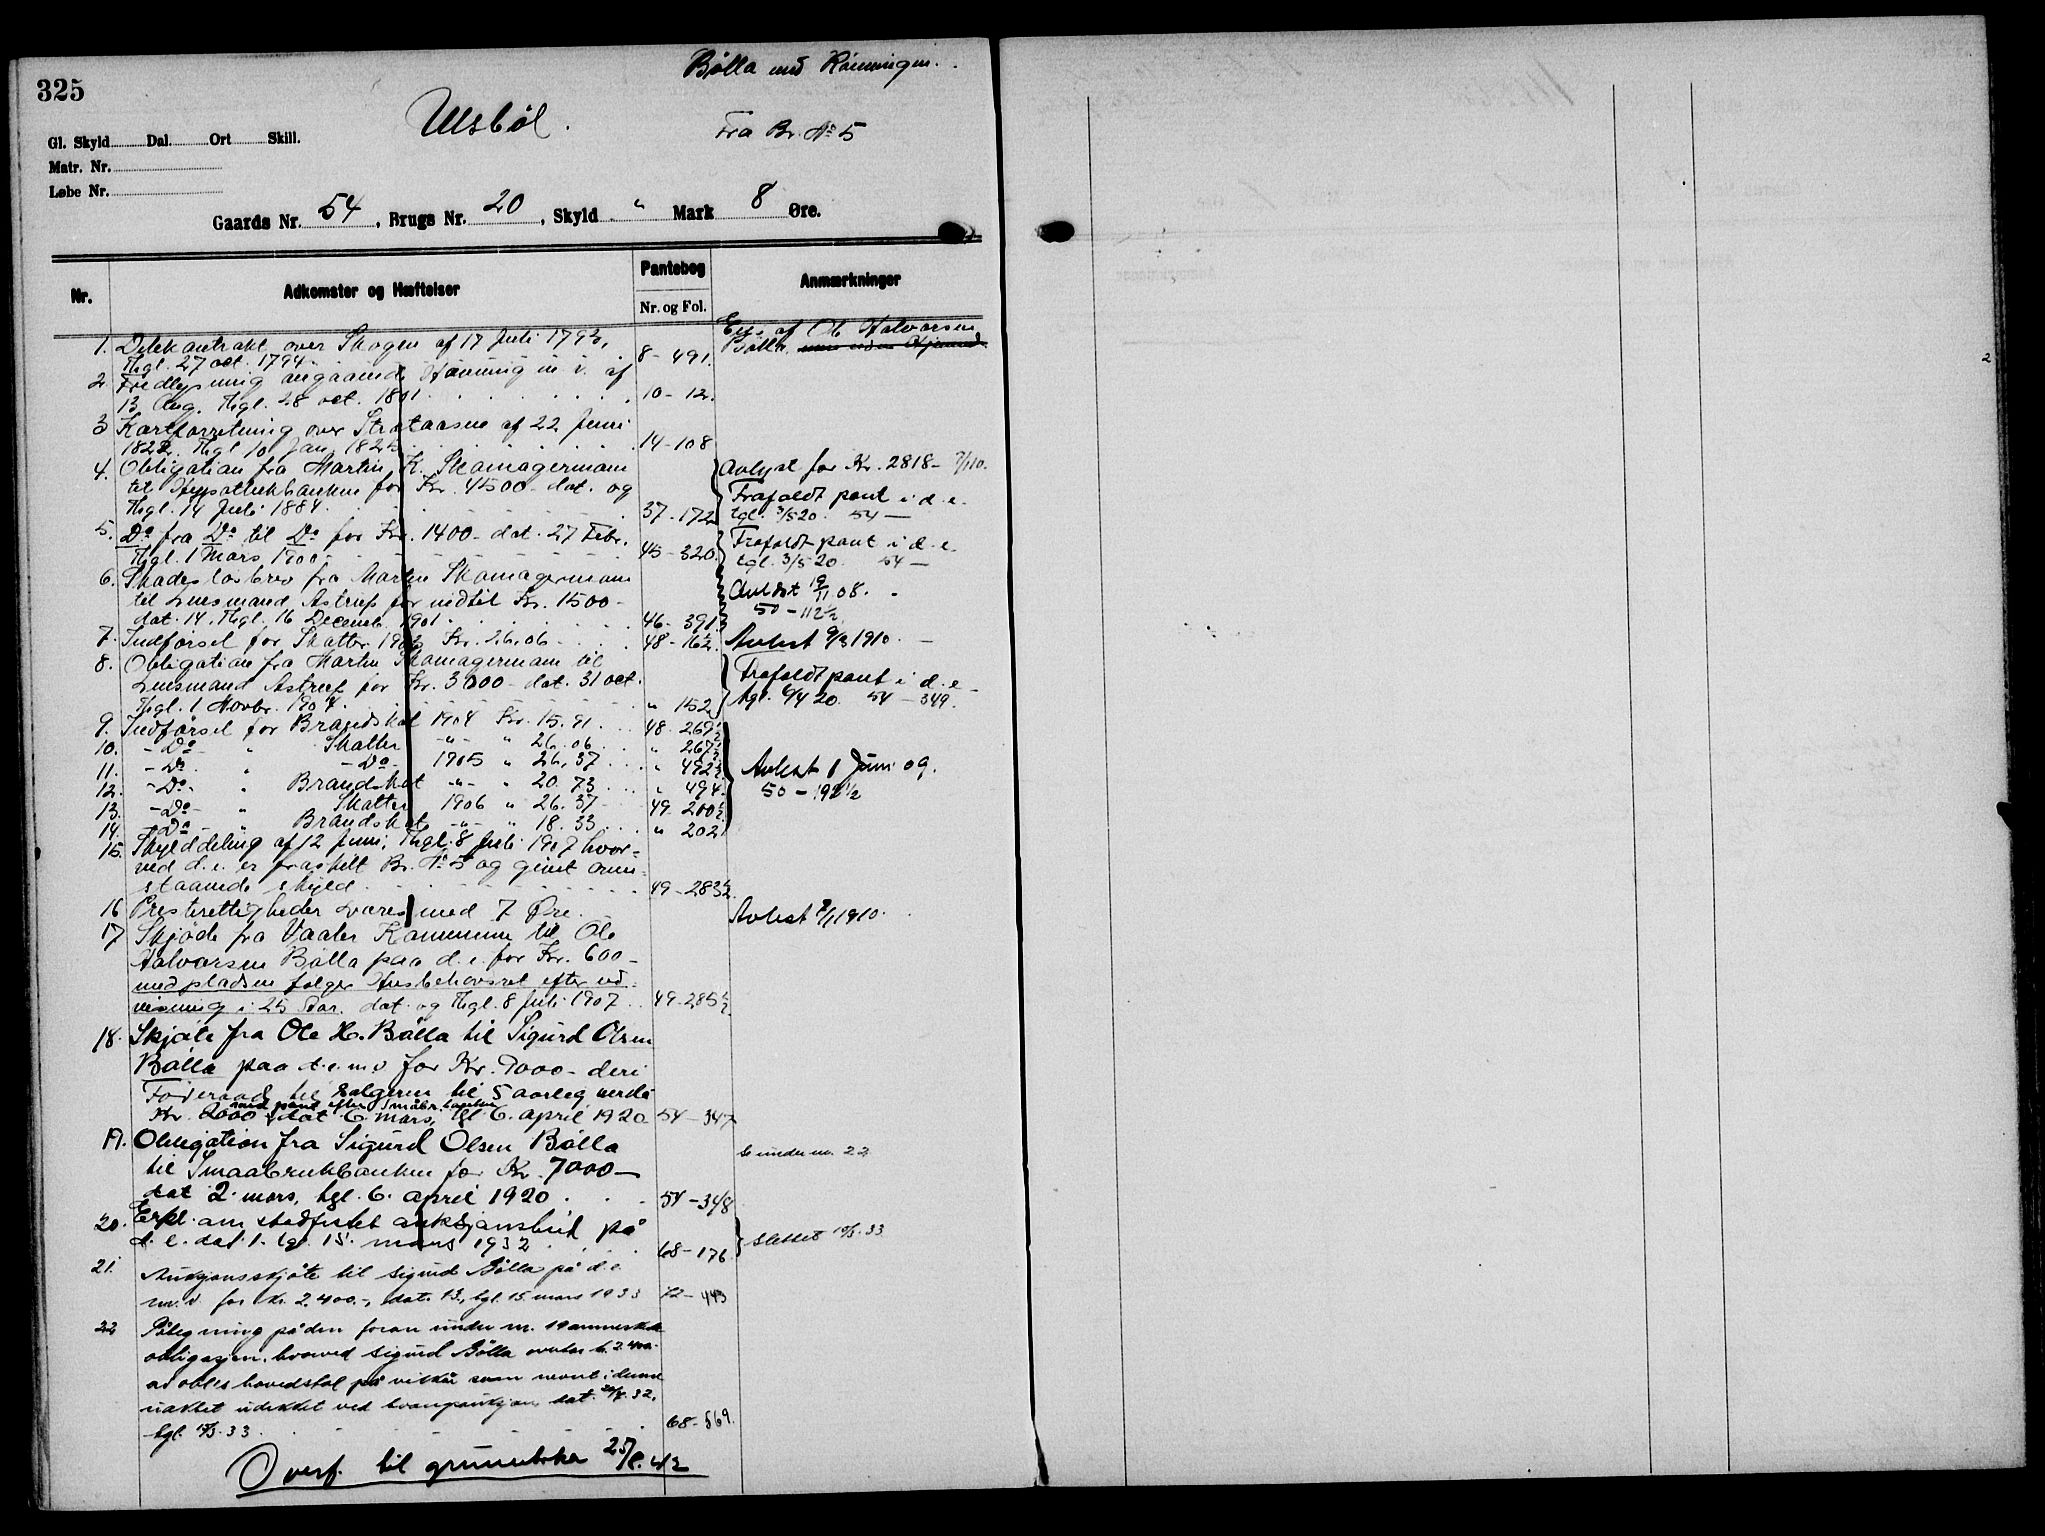 325
Bölla med Rönningen.
Ulsböl.
Fra Br. № 5
Gl. Skyld Dal. Ort Skill.
Matr. Nr.
Løbe Nr.
Gaards Nr. 54, Brugs Nr. 20, Skyld " Mark 8 Øre.
Nr. Adkomster og Hæftelser Pantebog Nr. og Fol. Anmærkninger
Eies af Ole Halvorsen
Bölla.
1. Delekontrakt over Skogen af 17 Juli 1793,
Thgl. 27 oct. 1794. 8-491.
2. Fredlysning angaaende Havning m. v. af
13 Aug. Thgl. 28 oct. 1801 10-12.
3 Kartforretning over aasene af 22 Juni
1822. Thgl 10 Jan. 1825 14-108
4. Obligation fra Martin K. Skomagermoen
til Hypothekbanken for Kr. 4500- dat. og
Thgl. 14 Juli 1884. 37-172
Avlyst for Kr. 2818-
Frafaldt pant i d. e.
tgl. 3/5 20. 54-
5. Do fra Do til Do for Kr. 1400- dat. 27 Febr.
Thgl. 1 Mars 1900 45-320.
Frafaldt pant i d. e.
tgl. 3/5 20. 54-
6. Skadeslösbrev fra Martin Skomagermoen
til Lensmand Astrup for indtil Kr. 1500-
dat. 14, Thgl. 16 Decemb. 1901 46-391.
Avlöst 19/11 08.
50-112½
7. Indförsel for Skatter 1903 Kr. 26.06 48-16½ Avlöst 9/3 1910.
8. Obligation fra Martin Skomagermoen til
Lensmand Astrup for Kr. 3000- dat. 31 oct.
Thgl. 1 Novbr. 1904. " 152
Frafaldt pant i d. e.
tgl. 6/4 20. 54-349.
9. Indförsel for Brandskat 1904 Kr. 15.91 48-267½
10. -Do- " Skatter -"- " 26.06 " 267½
11. -Do- " -Do- 1905 " 26.37 " 492½
12. -Do- " Brandskat -"- " 20.73 " 494
13. -Do- " Skatter 1906 " 26.37 49-200½
14. -Do- " Brandskat -"- " 18.33 " 202
Avlöst 1 Juni 09.
50-192½
15. Skylddeling af 12 Juni, Thgl. 8 Juli 1907 hvor-
ved d. e. er fraskilt Br. № 5 og givet oven-
staaende skyld 49-283½
16 Presterettigheder svares med 7 Öre. Avlöst 1910.
17 Skjöde fra Vaaler Kommune til Ole
Halvorsen Bölla paa d. e. for Kr. 600-
med pladsen fölger Husbehovsret efter ud-
visning i 25 Aar. dat. og Thgl. 8 Juli 1907 49-285½
18. Skjöte fra Ole H. Bölla til Sigurd Olsen
Bölla paa d. e. m. v. for Kr. 9000- deri
Föderaad til Sælgeren til 5 aarlig verdi
Kr. 2000 med pant efter Småbr. banken dat 6. mars, tgl 6. april 1920 54-347
19. Obligation fra Sigurd Olsen Bölla
til Smaabrukbanken for Kr. 7000-
dat 2. mars, tgl. 6. april 1920 54-348
Se under nr. 22
20. Erkl. om stadfestet auksjonsbud på
d. e. dat. 1. tgl. 15. mars 1932 68-176 Slettet 15/3. 33
21. Auksjonsskjöte til Sigurd Bölla på d. e.
m. v. for kr. 2.400.-, dat. 13, tgl. 15. mars 1933 72-443
22 Påtegning på den foran under nr. 19 anmerkede
obligasjon, hvorved Sigurd Bölla overtar kr. 2.400.-
av obl.s hovedstol på vilkår som nevnt i denne
uaktet udekket ved tvangsauksjon dat. 32,
tgl. 15/3. 33 68-569.
Overf. til grunnboken 25/8. 42